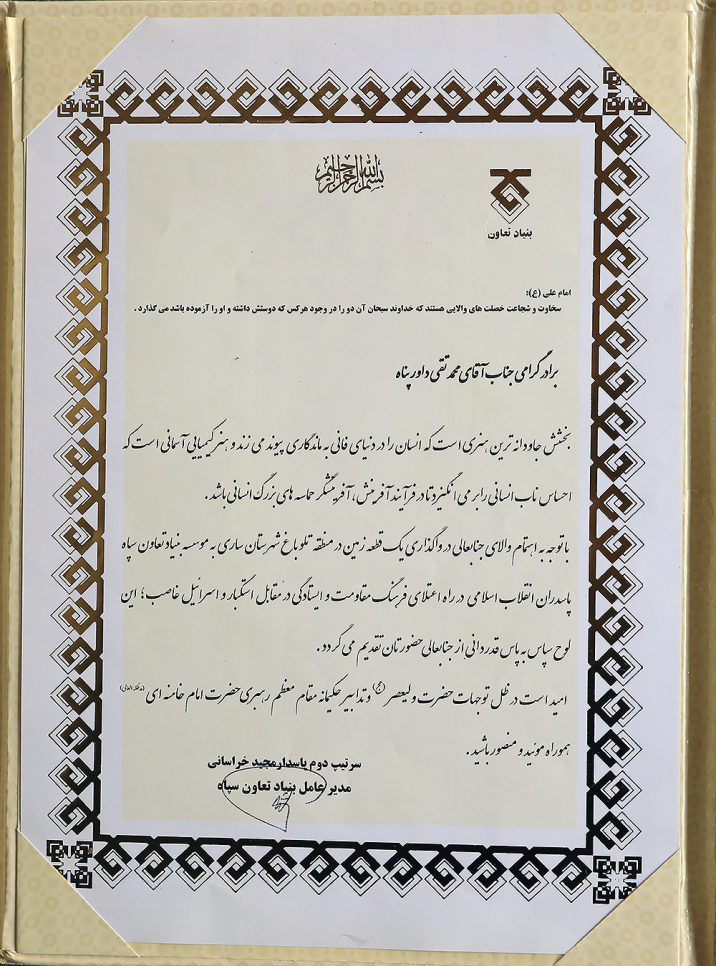 بسم الله الرحمن الرحیم
بنیاد تعاون
امام علی (ع):
سخاوت و شجاعت خصلت های والایی هستند که خداوند سبحان آن دو را در وجود هرکس که دوستش داشته و او را آزموده باشد می گذارد .
برادر گرامی جناب آقای محمد تقی داور پناه
بخشش جاودانه ترین هنری است که انسان را در دنیای فانی به ماندگاری پیوند می زند و هنر کیمیایی آسمانی است که
احساس ناب انسانی را بر می انگیزد تا در فرآیند آفرینش، آفرینشگر حماسه های بزرگ انسانی باشد .
با توجه به اهتمام والای جنابعالی در واگذاری یک قطعه زمین در منطقه تلو باغ شهرستان ساری به موسسه بنیاد تعاون سپاه
پاسدران انقلاب اسلامی در راه اعتلای فرهنگ مقاومت و ایستادگی در مقابل استکبار و اسرائیل غاصب؛ این
لوح سپاس به پاس قدردانی از جنابعالی حضورتان تقدیم می گردد .
امید است در ظل توجهات حضرت ولیعصر (عج) و تدابیر حکیمانه مقام معظم رهبری حضرت امام خامنه ای (مدظله العالی)
همواره موئید و منصور باشید .
سرتیپ دوم پاسدار مجید خراسانی
مدیر عامل بنیاد تعاون سپاه